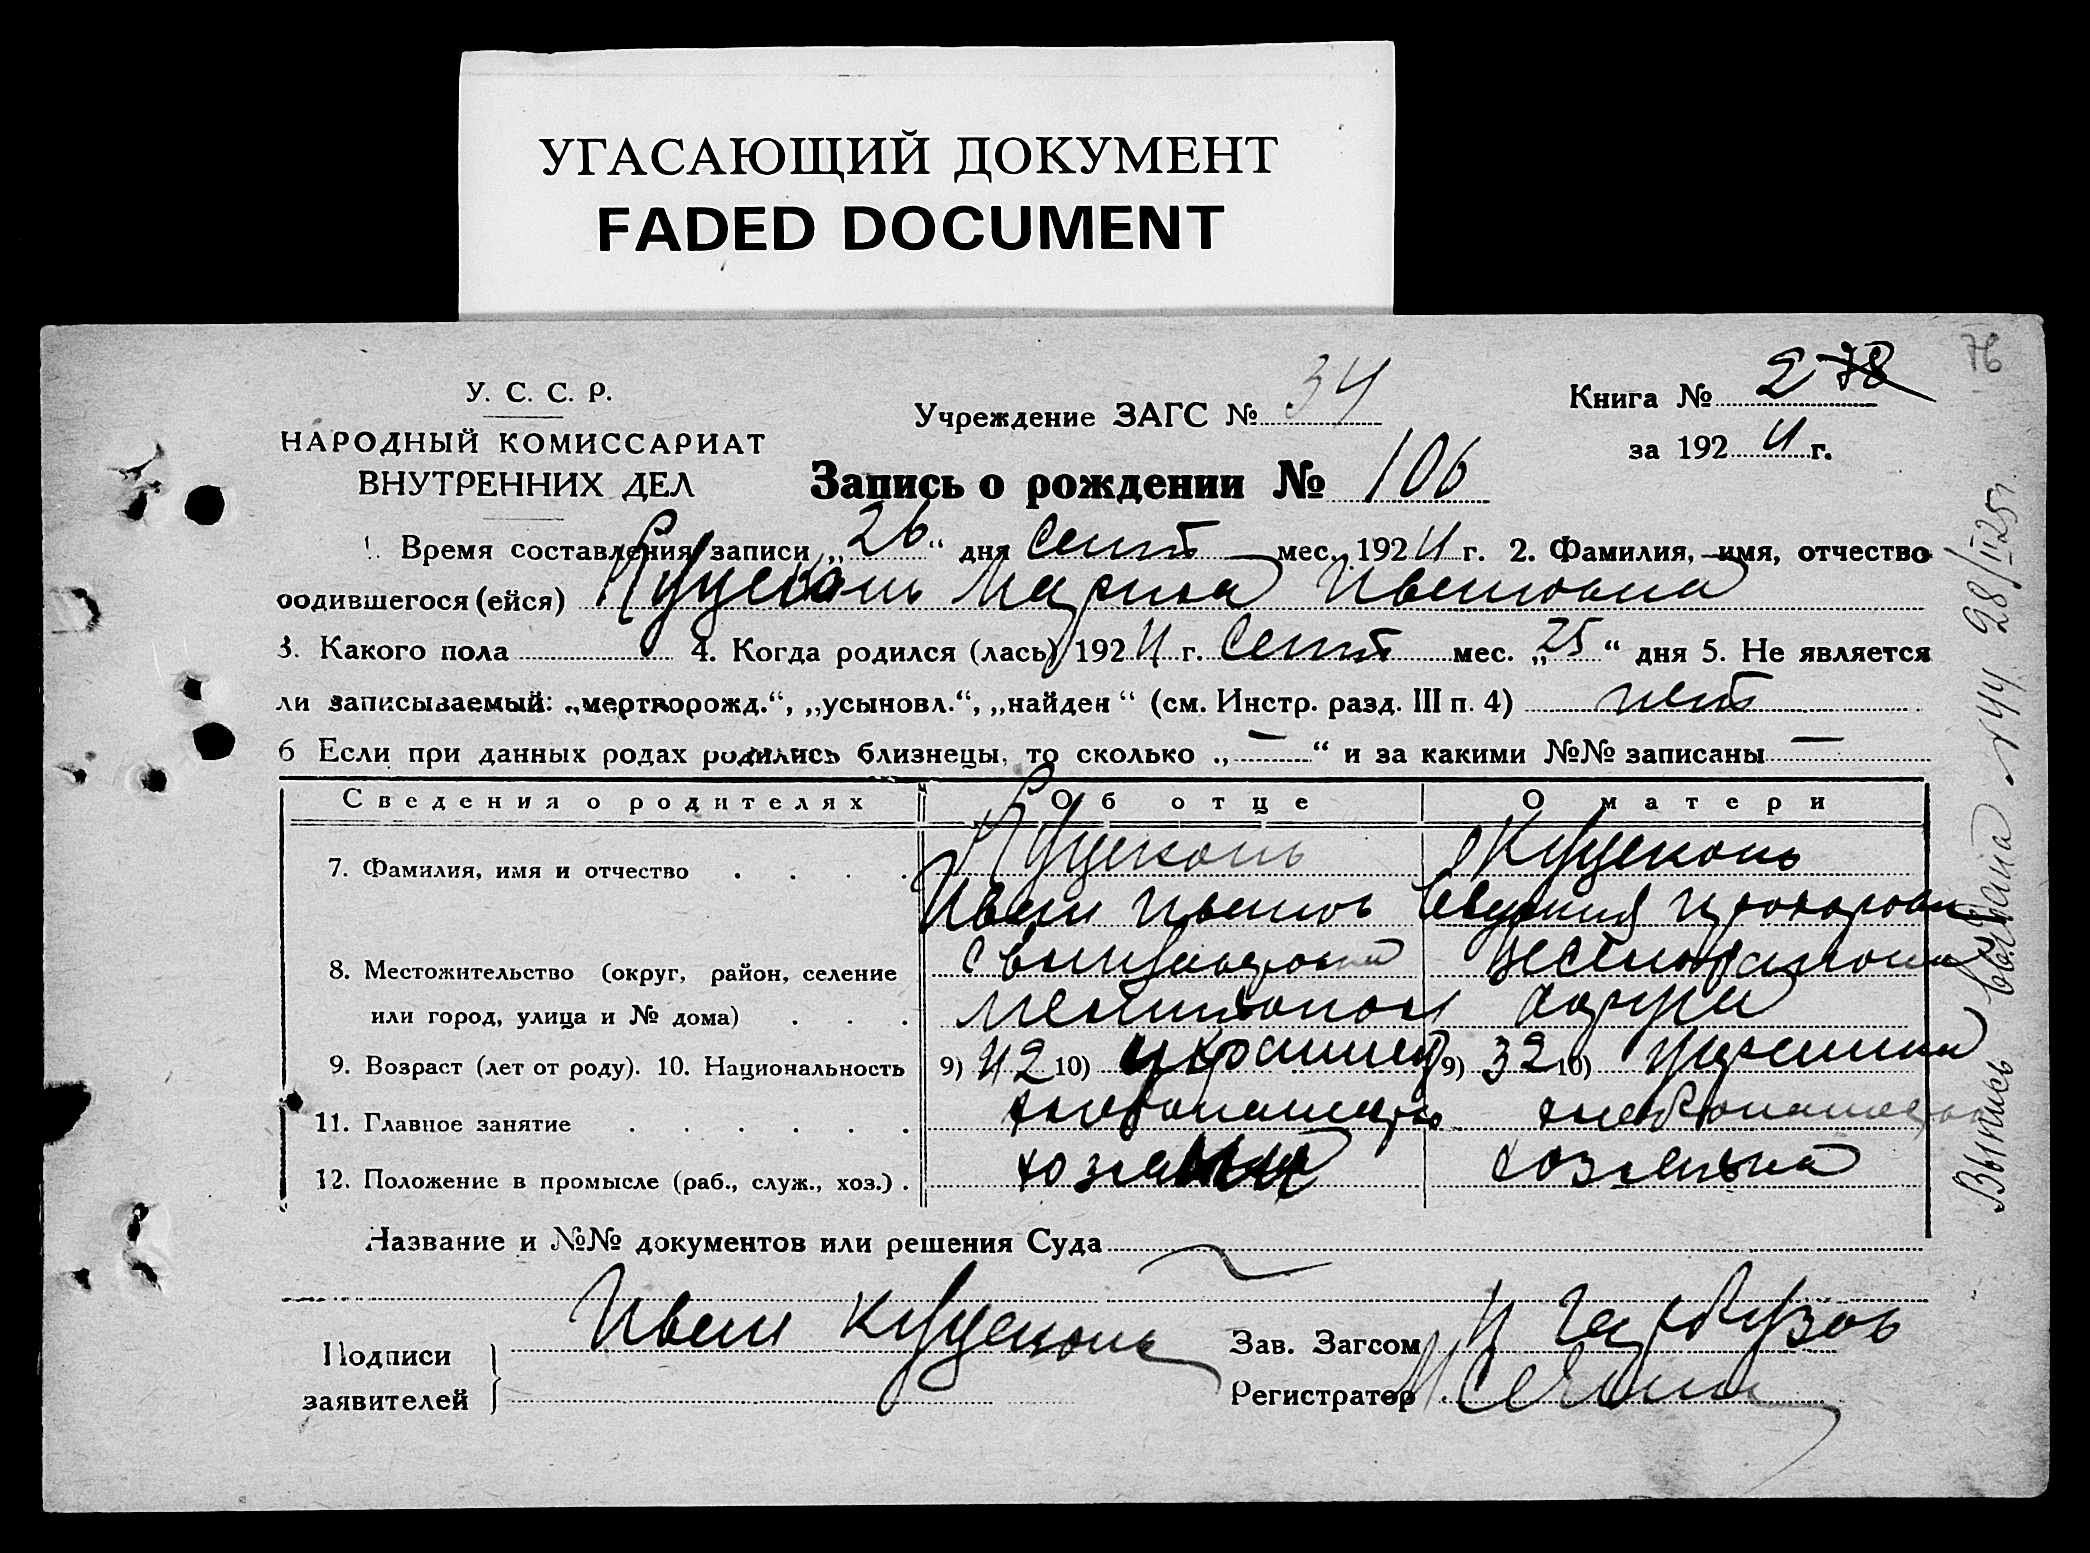 УГАСАЮЩИЙ ДОКУМЕНТ
FADED DOCUMENT
76
У. С. С. Р.
НАРОДНЫЙ КОМИССАРИАТ
ВНУТРЕННИХ ДЕЛ
Учреждение ЗАГС № 34
Книга № 2 78
за 1924 г.
Запись о рождении № 106
1. Время составления записи „26“ дня Сент мес. 1924 г. 2. Фамилия, имя, отчество
родившегося (ейся) Куцеконь Мария Ивановна
3. Какого пола 4. Когда родился (лась) 1924 г. Сент мес. „25“ дня 5. Не является
ли записываемый: „мертворожд.“, „усыновл.“, „найден“ (см. Инстр. разд. III п. 4) нет
6 Если при данных родах родились близнецы, то сколько „—“ и за какими №№ записаны —
Сведения о родителях Об отце О матери
7. Фамилия, имя и отчество Куцеконь Куцеконь
Иван Иванов Евдокия
8. Местожительство (округ, район, селение
или город, улица и № дома)
9. Возраст (лет от роду). 10. Национальность 9) 42 10) украинец 9) 32 10) украинка
11. Главное занятие хлебопашество хлебопашество
12. Положение в промысле (раб., служ., хоз.) хозяин хозяйка
Название и №№ документов или решения Суда
Подписи
заявителей
Иван Куцеконь
Зав. Загсом Гарбузов
Регистратор
Выпись выдана №44 28/II 25 г.